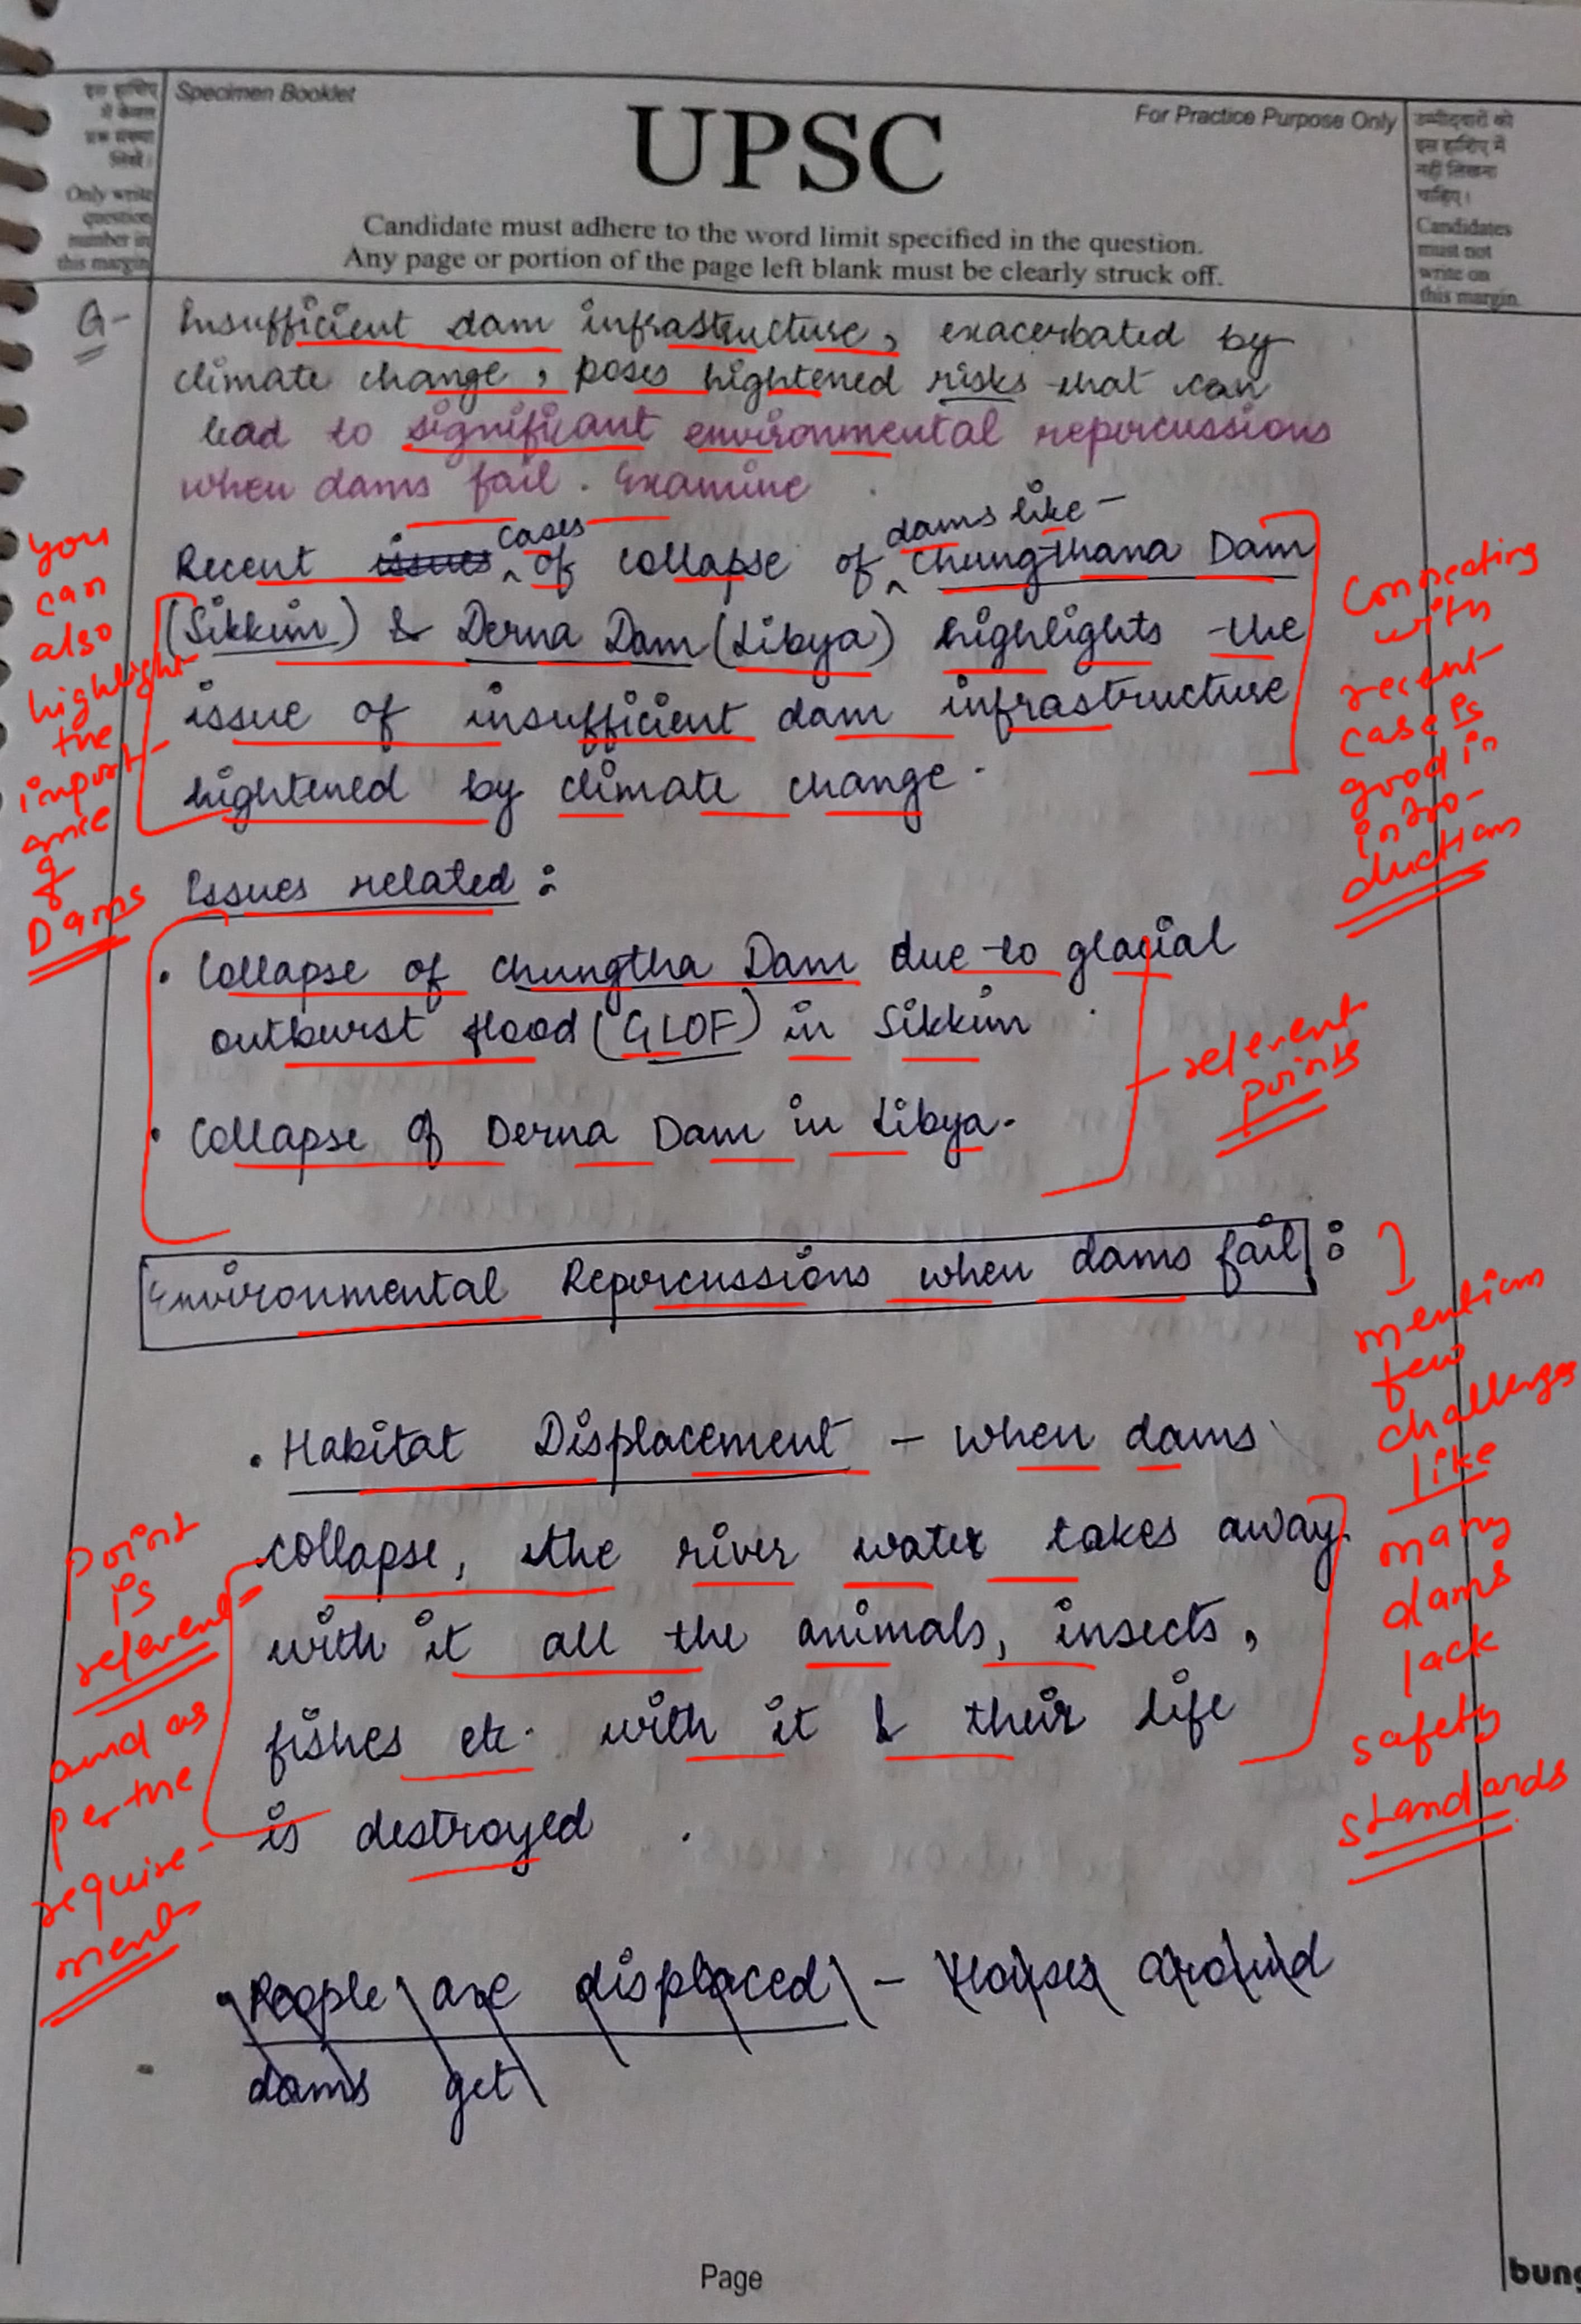 इस हाशिए
में केवल
प्रश्न संख्या
लिखें।
Only write
question
number in
this margin
Specimen Booklet
UPSC
For Practice Purpose Only
Candidate must adhere to the word limit specified in the question.
Any page or portion of the page left blank must be clearly struck off.
उम्मीदवारों को
इस हाशिए में
नहीं लिखना
चाहिए।
Candidates
must not
write on
this margin.
Q- Insufficient dam infrastructure, exacerbated by
climate change, poses hightened risks that can
lead to significant environmental repercussions
when dams fail. Examine
Recent issues cases of collapse of dams like - Chungthana Dam
(Sikkim) & Derna Dam (Libya) highlights the
issue of insufficient dam infrastructure
hightened by climate change.
you
can
also
highlight
the
import-
ance
of
Dams
Connecting
with
recent
case is
good in
intro-
duction
Issues related :
• Collapse of Chungtha Dam due to glacial
outburst flood (GLOF) in Sikkim
• Collapse of Derna Dam in Libya.
relevent
points
Environmental Repercussions when dams fail :
mention
few
challenges
like
many
dams
lack
safety
standards
• Habitat Displacement - when dams
collapse, the river water takes away
with it all the animals, insects,
fishes etc. with it & their life
is destroyed.
point
is
relevent
and as
per the
require-
ments
• People are displaced - Houses around
dams get
Page
bung